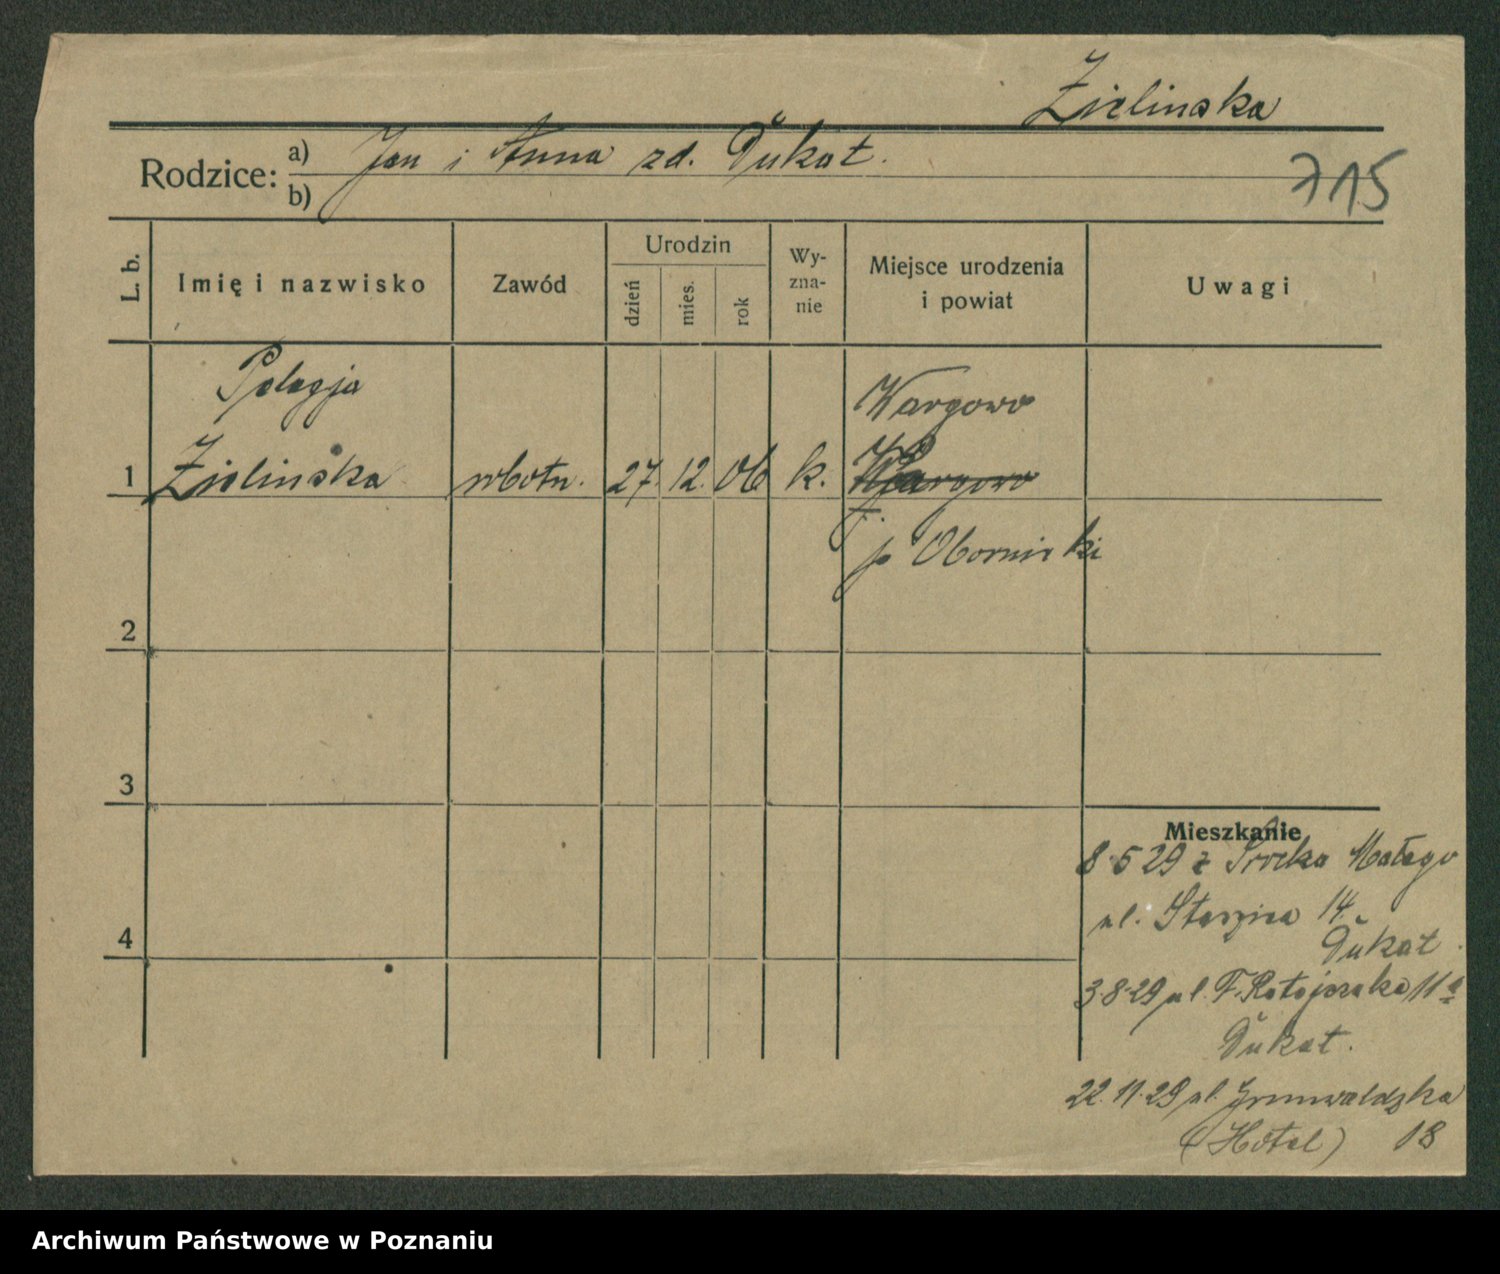 Zielinska
Rodzice: a) Jan i Anna zd. Dŭkat.
b)
715
L. b.
Imię i nazwisko
Zawód
Urodzin
dzień
mies.
rok
Wy-
zna-
nie
Miejsce urodzenia
i powiat
Uwagi
Pelagja
Wargowo
1 Zielinska robotn. 27. 12. 06 k. Wargowo
p Obornicki
2
3
4
Mieszkanie
8.5 29 z Srocka Małego
ul. Staszica 14.
Dŭkat.
3.8.29 ul. F. Ratajczaka 11a
Dŭkat.
22.11.29 ul. Grunwaldzka
(Hotel) 18
Archiwum Państwowe w Poznaniu